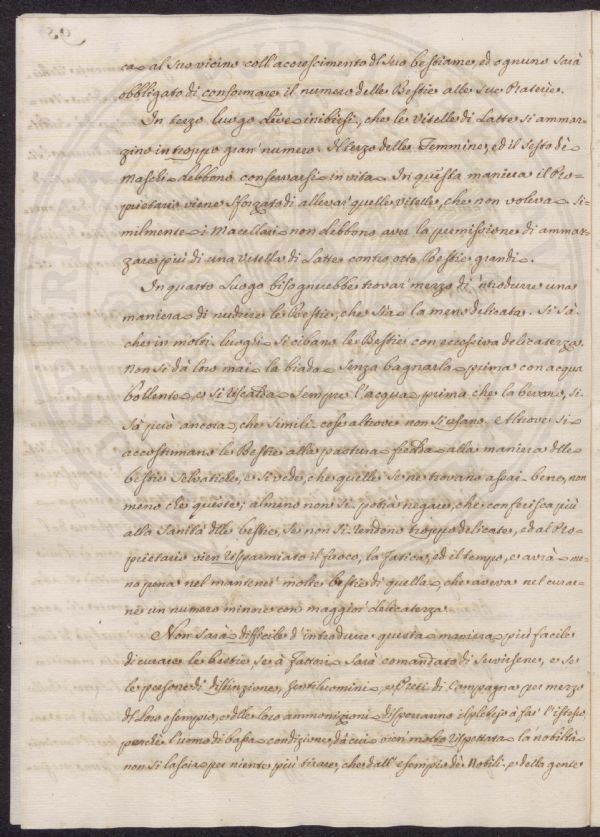 ca al suo vicino coll'accrescimento dl suo bestiame, ed ognuno sarà
obbligato di conformare il numero delle Bestie alle sue Praterie.
In terzo luogo deve inibirsi, che le Vitelle di Latte si ammaz-
zino in troppo gran' numero. Il terzo delle Femmine, ed il sesto dè
Maschi debbono conservarsi in vita. In questa maniera il Pro-
prietario viene sforzato di allevar' quelle vitelle, che non voleva. Si-
milmente i Macellari non debbono aver la permissione di ammaz-
zare più di una vitella di Latte contro otto Bestie grandi.
In quarto Luogo bisognerebbe trovar' mezzo di introdurre una
maniera di nudrire le Bestie, che sia la meno delicata. Si sà
che in molti luoghi si cibano le Bestie con eccessiva delicatezza.
Non si dà loro mai la biada senza bagnarla prima con acqua
bollente, e si riscalda sempre l'acqua prima che la bevano, si
sà però ancora, che simili cose altrove non si usano. Altrove si
accostumano le Bestie alla pastura fredda alla maniera dlle
bestie selvatiche, e si vede, che quelle se ne trovano assai bene, non
meno che queste; almeno non si potrà negare, che conferisca più
alla sanità dlle bestie, se non si rendono troppo delicate, ed al Pro-
prietario vien risparmiato il fuoco, la fatica, ed il tempo, e avrà me-
no pena nel mantener' molte bestie di quella, che aveva nel curar-
ne un numero minore con maggior' delicatezza.
Non sarà difficile d'introdurre questa maniera più facile
di curare le bestie, se à Fattori sarà comandato di servirsene, e se
le persone di distinzione, Gentiluomini, e Preti di Campagna per mezzo
dl loro esempio, e dlle loro ammonizioni disporranno il plebejo à far' l'istesso
perchè l'uomo di bassa condizione, da cui vien' molto rispettata la nobiltà
non si lascia per niente più tirare, che dall'esempio dè Nobili, e della gente